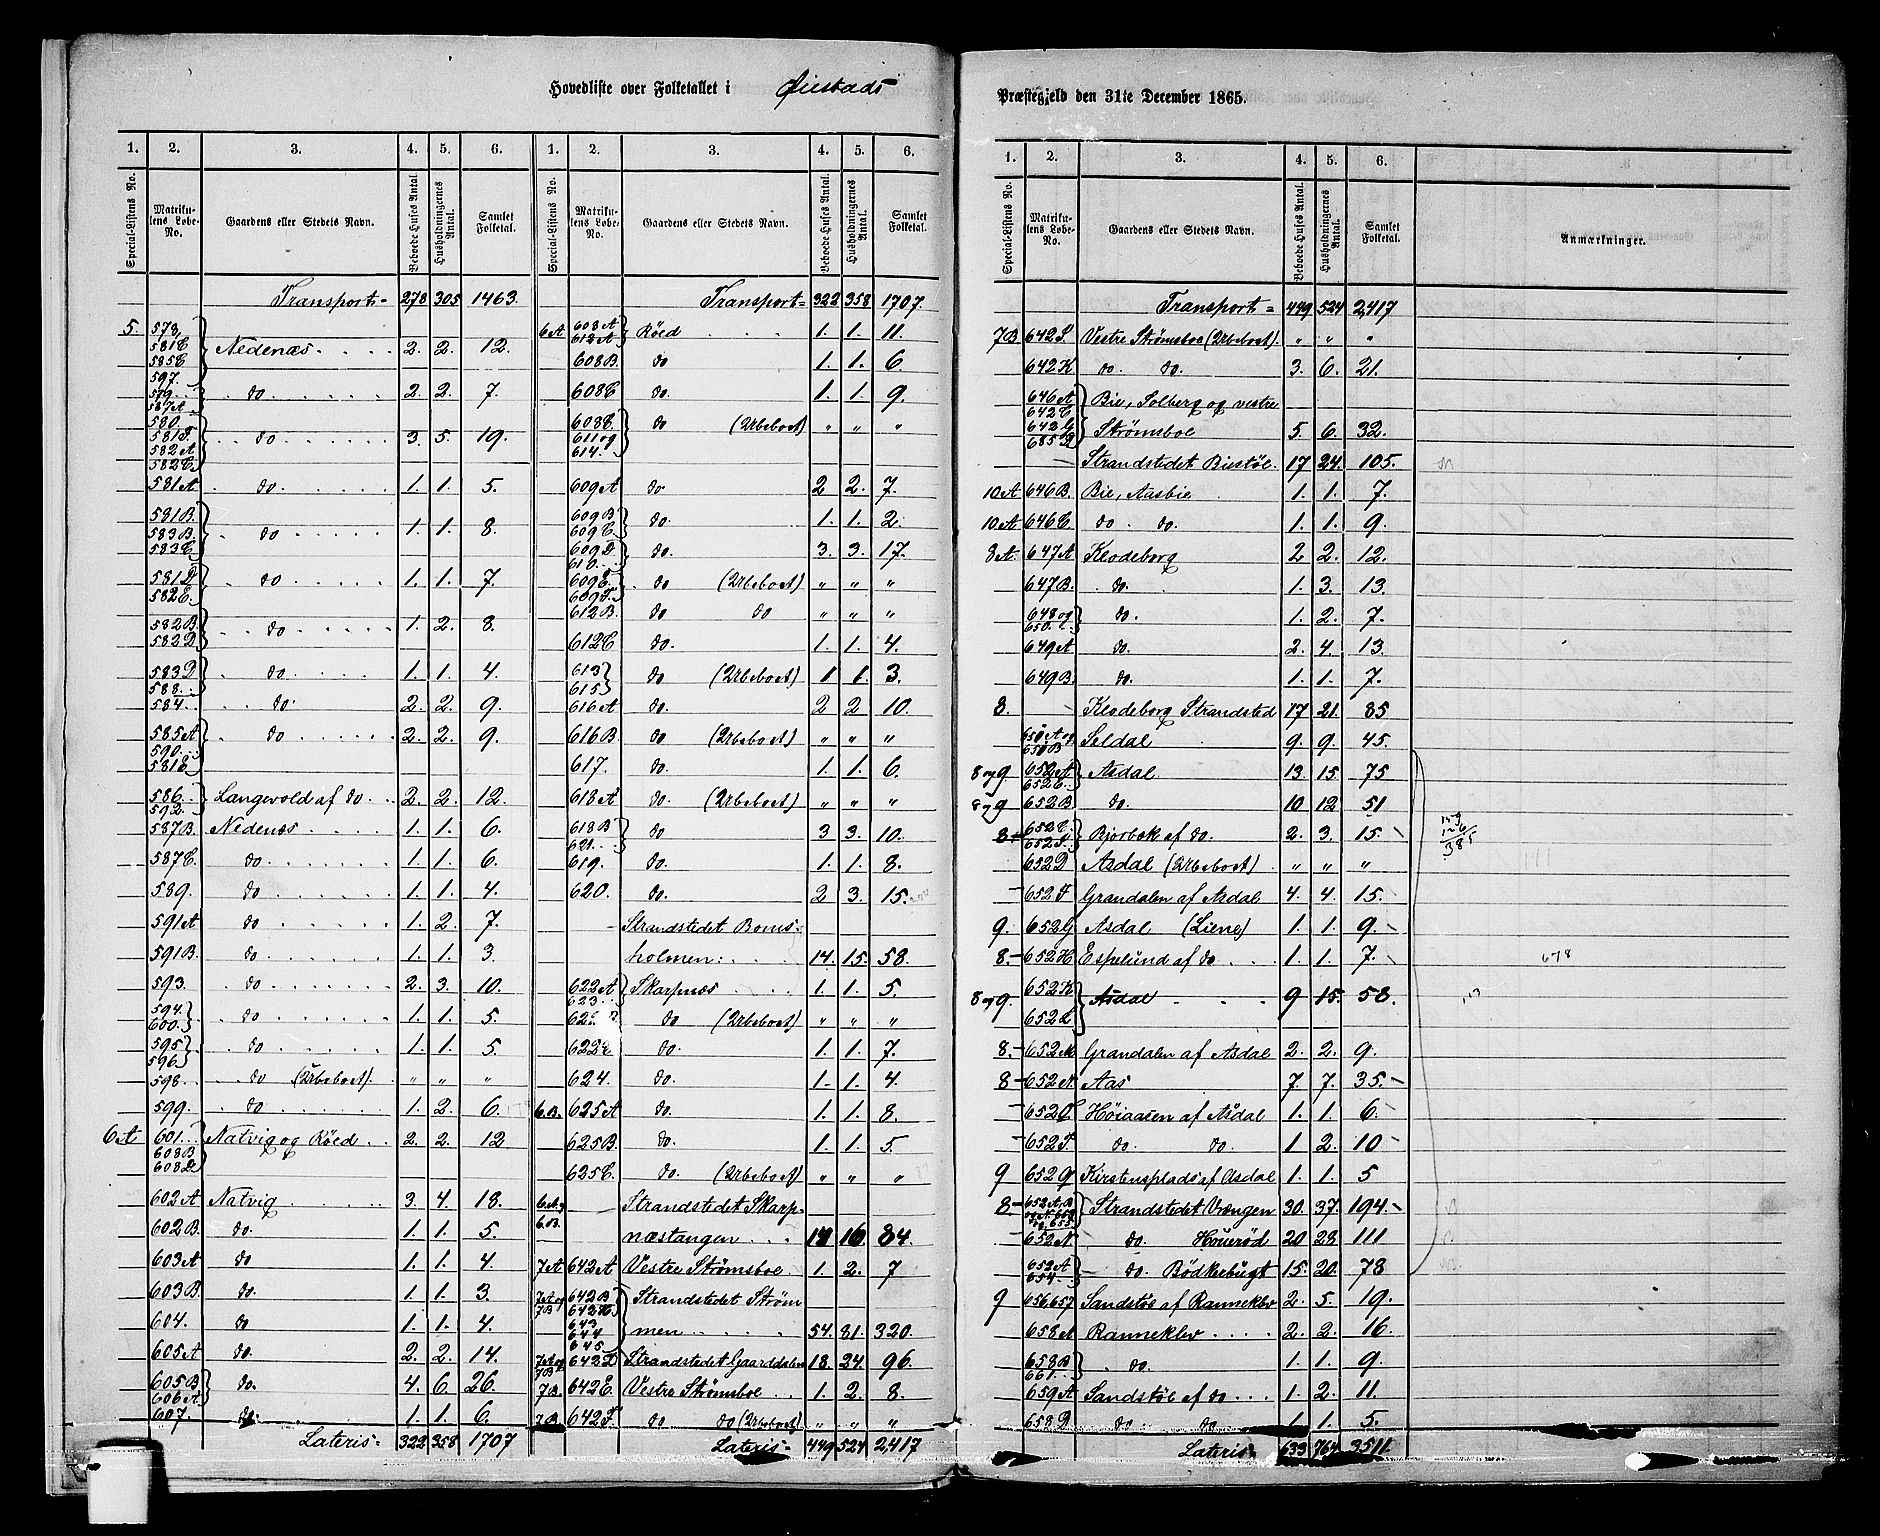 Hovedliste over Folketallet i Øiestads
Præstegjeld den 31te December 1865.
1. 2. 3. 4. 5. 6. 1. 2. 3. 4. 5. 6.
Special-Listens No. Matrikulens Løbe-No. Gaardens eller Stedets Navn. Beboede Huses Antal. Husholdningernes Antal. Samlet Folketal.
Transport = 278 305 1463.
5. 578, 581C 585C 597. Nedenæs 2. 2. 12.
579. 587A do 2. 2. 7.
580. 581F. 582A 582C do 3. 5. 19.
581A do 1. 1. 5.
581B. 583B. 583C do 1. 1. 8.
581D 582E. do 1. 1. 7.
582B. 582D. do 1. 2. 8.
583D 588. do 1. 1. 4.
584. do 2. 2. 9.
585A 590. 581E do 2. 2. 9.
586. 592. Langevold af do 2. 2. 12.
587B. Nedenæs 1. 1. 6.
587C. do 1. 1. 6.
589. do 1. 1. 4.
591A do 1. 2. 7.
591B. do 1. 1. 3.
593. do 2. 3. 10.
594. 600. do 1. 1. 5.
595 596 do 1. 1. 5.
598. do (Ubeboet) " " "
599. do 1. 2. 6.
6A 601. 608B 608D Natvig og Röed 2. 2. 12
602A Natvig 3. 4. 18.
602B. do 1. 1. 5.
603A do 1. 1. 4.
603B. do. 1. 1. 3.
604. do 1. 1. 4.
605A do. 2. 2. 14.
605B 606A do. 4. 6. 26.
607. do. 1. 1. 6.
Lateris = 322 358 1707
Transport = 322 358 1707.
6A 608A 612A Röed 1. 1. 11.
608B do 1. 1. 6
608C do 1. 1. 9.
608E. 611 og 614. do (Ubeboet) " " "
609A do 2 2. 7.
609B 609C. do. 1. 1. 2.
609D 610. do. 3. 3. 17.
609E. 609F. do (Ubeboet) " " "
612B. do do " " "
612C do. 1. 1. 4.
613 615 do (Ubeboet) 1 1. 3.
616A do. 2 2 10.
616B do (Ubeboet) " " "
617. do. 1. 1. 6.
618A do. (Ubeboet) " " "
618B 621. do 3 3. 10.
619. do. 1. 1. 8.
620. do. 2 3. 15.
Strandstedet Boms-
holmen: 14. 15. 58.
622A 623. Skarpnæs 1. 1. 5.
do (Ubeboet) " " "
622C do. 1. 1. 7.
624. do. 1. 1. 4.
6B. 625A do. 1. 1. 8.
625B do. 1. 1. 5.
625C. do. (Ubeboet) " " "
6A og 6B. Strandstedet Skarp-
næstangen 14 16 84.
7A 642A Vestre Strømsboe 1. 2. 7
7A og 7B 642B 642H. 643 644 645 Strandstedet Strøm
men 54. 81. 320.
7A og 7B 642D Strandstedet Gaarddalen 18. 24. 96.
7B. 642E. Vestre Strømsboe 1. 2. 8.
7B. 642F. do do (Ubeboet) " " "
Lateris = 449 524 2,417
1. 2. 3. 4. 5. 6.
Special-Listens No. Matrikulens Løbe-No. Gaardens eller Stedets Navn. Beboede Huses Antal. Husholdningernes Antal. Samlet Folketal. Anmærkninger.
Transport = 449 524 2,417
7B Vestre Strømsboe (Ubeboet) " " "
642K do. do. 3. 6. 21.
646A 642C 642G 685B Bie, Solberg og vestre
Strømsboe 5. 6. 32.
Strandstedet Biestöl 17 24. 105.
10A 646B. Bie, Aasbie 1. 1. 7.
10A 646C do. do. 1. 1. 9.
8A 647A Klodeborg 2 2. 12.
647B. do. 1. 3. 13.
648 og 650. do. 1. 2. 7.
649A do. 2. 4. 13.
649B. do. 1. 1. 7.
8. Klodeborg Strandsted 17 21. 85
Seldal 9. 9. 45.
8 og 9. 652A 652E. Asdal 13. 15. 75
8 og 9 652B do. 10 12 51
8- Bjorbek af do. 2. 3. 15.
652D Asdal (Ubeboet) " " "
652F Grandalen af Asdal 4. 4. 15.
9. 652G Asdal (Liene) 1. 1. 9.
8.- 652H Espelund af do 1. 1. 7. 678
8 og 9. 652K 652L Asdal 9 15. 58.
8.- 652M Grandalen af Asdal 2. 2. 9.
8 652N Aas 7. 7. 35.
Höiaasen af Asdal 1. 1. 6.
do do. 1 2. 10
9 652Q Kirstensplads af Asdal 1. 1. 5
8.- Strandstedet Vrængen 30. 37. 194
652N do. Houeröd 20 28. 111
652A 654. do. Bödkerbugt 15. 20. 78
9 656,657 Sandstöe af Ranneklev 2. 5. 19.
658A Ranneklev 2. 2. 16
658B 661. do. 1. 1. 9.
659A Sandstöl af do 1. 2. 11.
658D do do. 1 1. 5.
Lateris = 633 764 3511.